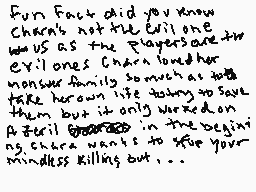 fun fact did you know
chara's not the evil one
us as the players are the
evil ones Chara loved her
monster family so much as to
take her own life to try to save
them but it only worked on
Azeril in the begini
ng. chara wants to stop your
mindless killing but...